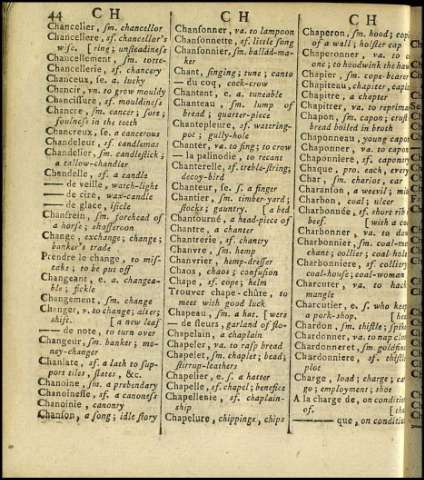 44
C H
C H
C H
Chancelier, sm. chancellor
Chanceliere, sf. chancellor's
wife. [ring; unsteadiness
Chancellement, sm. totte-
Chancellerie, sf. chancery
Chanceux, se. a. lucky
Chancir, vn. to grow mouldy
Chancissure, sf. mouldiness
Chancre, sm. cancer; sore;
foulness in the teeth
Chancreux, se. a. cancerous
Chandeleur, sf. candlemas
Chandelier, sm. candlestick;
a tallow-chandler
Chandelle, sf. a candle
— de veille, watch-light
— de cire, wax-candle
— de glace, isicle
Chanfrein, sm. forehead of
a horse; shafferoon
Change, exchange; change;
banker's trade
Prendre le change, to mis-
take; to be put off
Changeant, e. a. changea-
ble; fickle
Changement, sm. change
Changer, v. to change; alter;
shift. [a new leaf
— de note, to turn over
Changeur, sm. banker; mo-
ney-changer
Chanlate, sf. a lath to sup-
port tiles, slates, &c.
Chanoine, sm. a prebendary
Chanoinesse, sf. a canoness
Chanoinie, canonry
Chanson, a song; idle story
Chansonner, va. to lampoon
Chansonnette, sf. little song
Chansonnier, sm. ballad-ma-
ker
Chant, singing; tune; canto
— du coq, cock-crow
Chantant, e. a. tuneable
Chanteau, sm. lump of
bread; quarter-piece
Chantepleure, sf. watering-
pot; gully-hole
Chanter, va. to sing; to crow
— la palinodie, to recant
Chanterelle, sf. treble-string;
decoy-bird
Chanteur, se. s. a singer
Chantier, sm. timber-yard;
stocks; gauntry. [a bed
Chantourné, a head-piece of
Chantre, a chanter
Chantrerie, sf. chantry
Chanvre, sm. hemp
Chanvrier, hemp-dresser
Chaos, chaos; confusion
Chape, sf. cope; helm
Trouver chape-chûte, to
meet with good luck
Chapeau, sm. a hat. [wers
— de fleurs, garland of flo-
Chapelain, a chaplain
Chapeler, va. to rasp bread
Chapelet, sm. chaplet; bead;
stirrup-leathers
Chapelier, e. s. a hatter
Chapelle, sf. chapel; benefice
Chapellenie, sf. chaplain-
ship
Chapelure, chippings, chips
Chaperon, sm. hood; cop
of a wall; holster cap
Chaperonner, va. to
one; to hoodwink the haw
Chapier, sm. cope-bearer
Chapiteau, chapiter, capita
Chapitre, a chapter
Chapitrer, va. to reprima
Chapon, sm. capon; crust
bread boiled in broth
Chaponneau, young capon
Chaponner, va. to capon
Chaponniere, sf. caponry
Chaque, pro. each, every
Char, sm. chariot, car
Charanson, a weevil; mi
Charbon, coal; ulcer
Charbonnée, sf. short rib
beef. [with a co
Charbonner, va. to dau
Charbonnier, sm. coal-ma
chant; collier; coal-hole
Charbonniere, sf. collier
coal-house; coal-woman
Charcuter, va. to hack
mangle
Charcutier, e. s. who keep
a pork-shop. [her
Chardon, sm. thistle; spike
Chardonner, va. to nap clo
Chardonneret, sm. goldfinc
Chardonniere, sf. thistle
plot
Charge, load; charge; ca
go; employment; shoe
A la charge de, on condition
of. [tha
— que, on condition